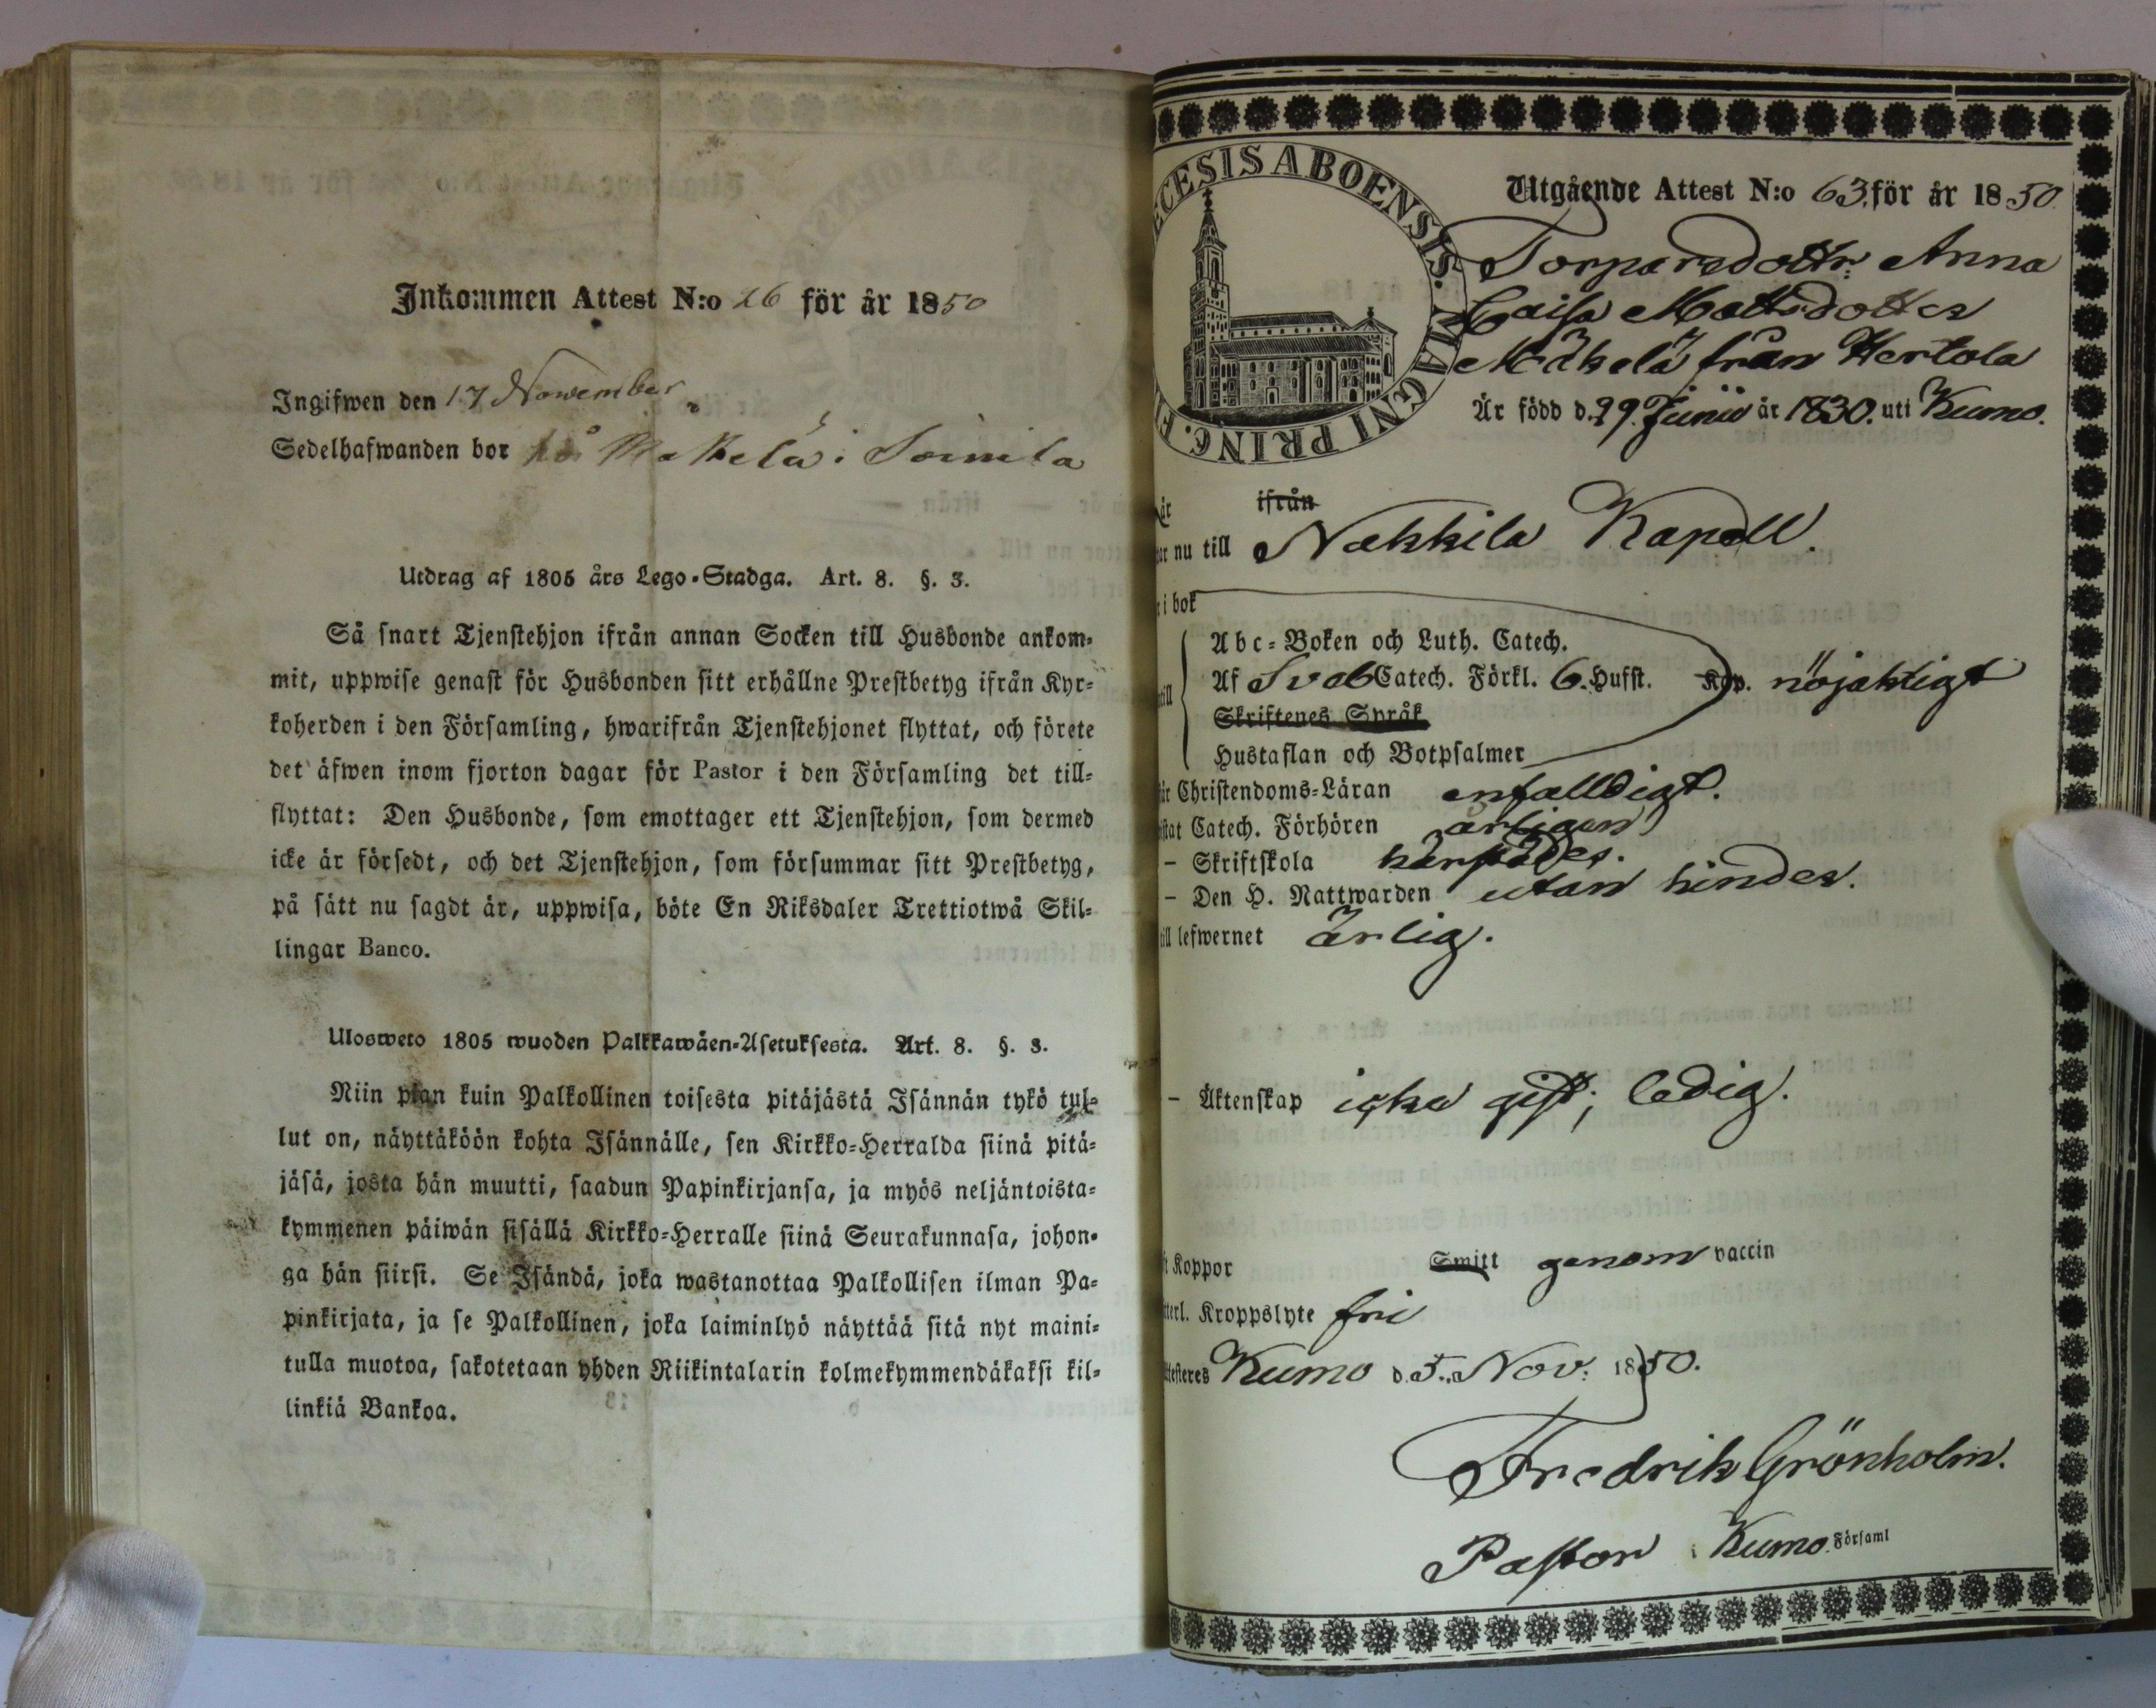 Inkommen Attest N:o 26 för år 1850
Ingifwen den 17 November
Sedelhafwanden bor hos Mäkelä i Soinila
Utdrag af 1805 års Lego-Stadga. Art. 8. §. 3.
Så snart Tjenstehjon ifrån annan Socken till Husbonde ankom-
mit, uppwise genast för Husbonden sitt erhållne Prestbetyg ifrån Kyr-
koherden i den Församling, hwarifrån Tjenstehjonet flyttat, och förete
det äfwen inom fjorton dagar för Pastor i den Församling det till-
flyttat: Den Husbonde, som emottager ett Tjenstehjon, som dermed
icke är försedt, och det Tjenstehjon, som försummar sitt Prestbetyg,
på sätt nu sagdt är, uppwisa, böte En Riksdaler Trettiotwå Skil-
lingar Banco.
Ulosweto 1805 wuoden Palkkawäen-Asetuksesta. Art. 8. §. 3.
Niin pian kuin Palkollinen toisesta pitäjästä Isännän tykö tul-
lut on, näyttäköön kohta Isännälle, sen Kirkko-Herralda siinä pitä-
jäsä, josta hän muutti, saadun Papinkirjansa, ja myös neljäntoista-
kymmenen päiwän sisällä Kirkko-Herralle siinä Seurakunnasa, johon-
ga hän siirsi. Se Isändä, joka wastanottaa Palkollisen ilman Pa-
pinkirjata, ja se Palkollinen, joka laiminlyö näyttää sitä nyt maini-
tulla muotoa, sakotetaan yhden Riikintalarin kolmekymmendäkaksi kil-
linkiä Bankoa.
ECESIS ABOENSIS. MAGNI PRINC. F
Utgående Attest N:o 63. för år 1850.
Torparedottr: Anna
Caisa Mattsdotter
Mäkelä från Hertola
Är född d. 29. Junii år 1830. uti Kumo.
är ifrån
ar nu till Nakkila Kapell.
r i bok
Abc-Boken och Luth. Catech.
Af Sveb Catech. Förkl. 6. Hufst. Kap. nöjaktigt
Skriftenes Språk
Hustaflan och Botpsalmer
är Christendoms-Läran enfalldigt.
istat Catech. Förhören årligen
- Skriftskola härstädes.
- Den H. Nattwarden utan hinder.
till lefwernet ärlig.
- Äktenskap icke gift; ledig.
t Koppor Smitt genom vaccin
tterl. Kroppslyte fri
ttesteres Kumo d. 5. Nov: 1850.
Fredrik Grönholm.
Pastor i Kumo Församl